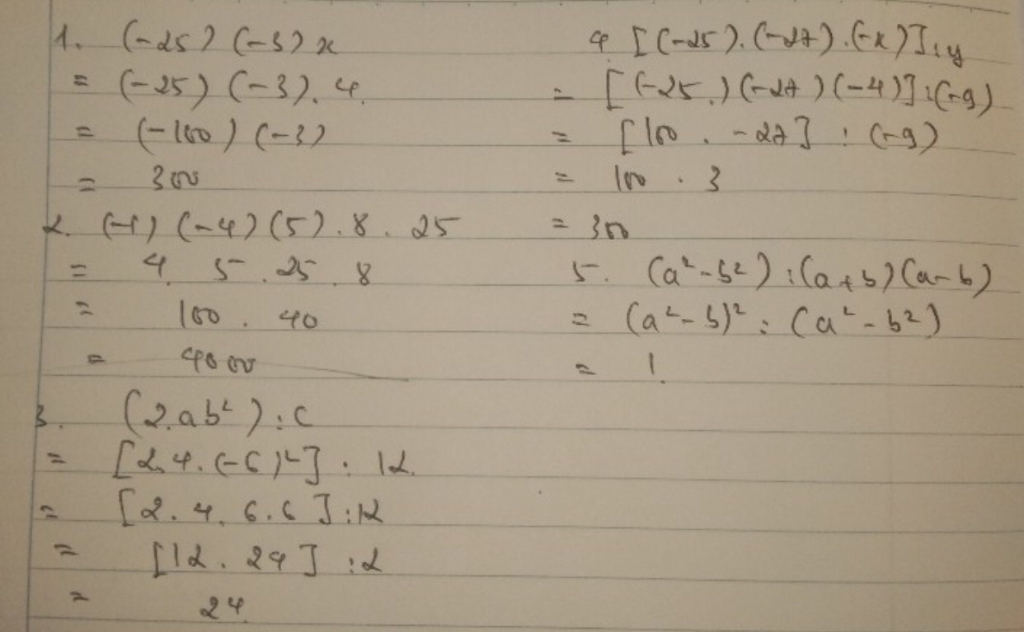 1. (-25) (-3) x
= (-25) (-3). 4
= (-100) (-3)
= 300
2. (-1) (-4) (5) . 8 . 25
= 4 5 . 25 . 8
= 100 . 40
= 4000
3. (2.ab²) : c
= [2.4.(-6)²] : 12
= [2. 4. 6.6] :12
= [12 . 24] :2
= 24
4 [(-25).(-27).(-x)]:y
= [(-25.)(-27)(-4)]:(-9)
= [100 . -27] : (-9)
= 100 . 3
= 300
5. (a²-b²) : (a+b)(a-b)
= (a²-b)² : (a²-b²)
= 1